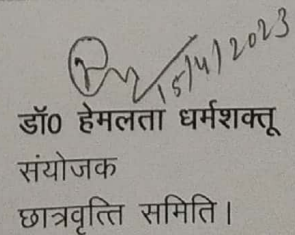 15/4/2023
डॉ0 हेमलता धर्मशक्तू
संयोजक
छात्रवृत्ति समिति।